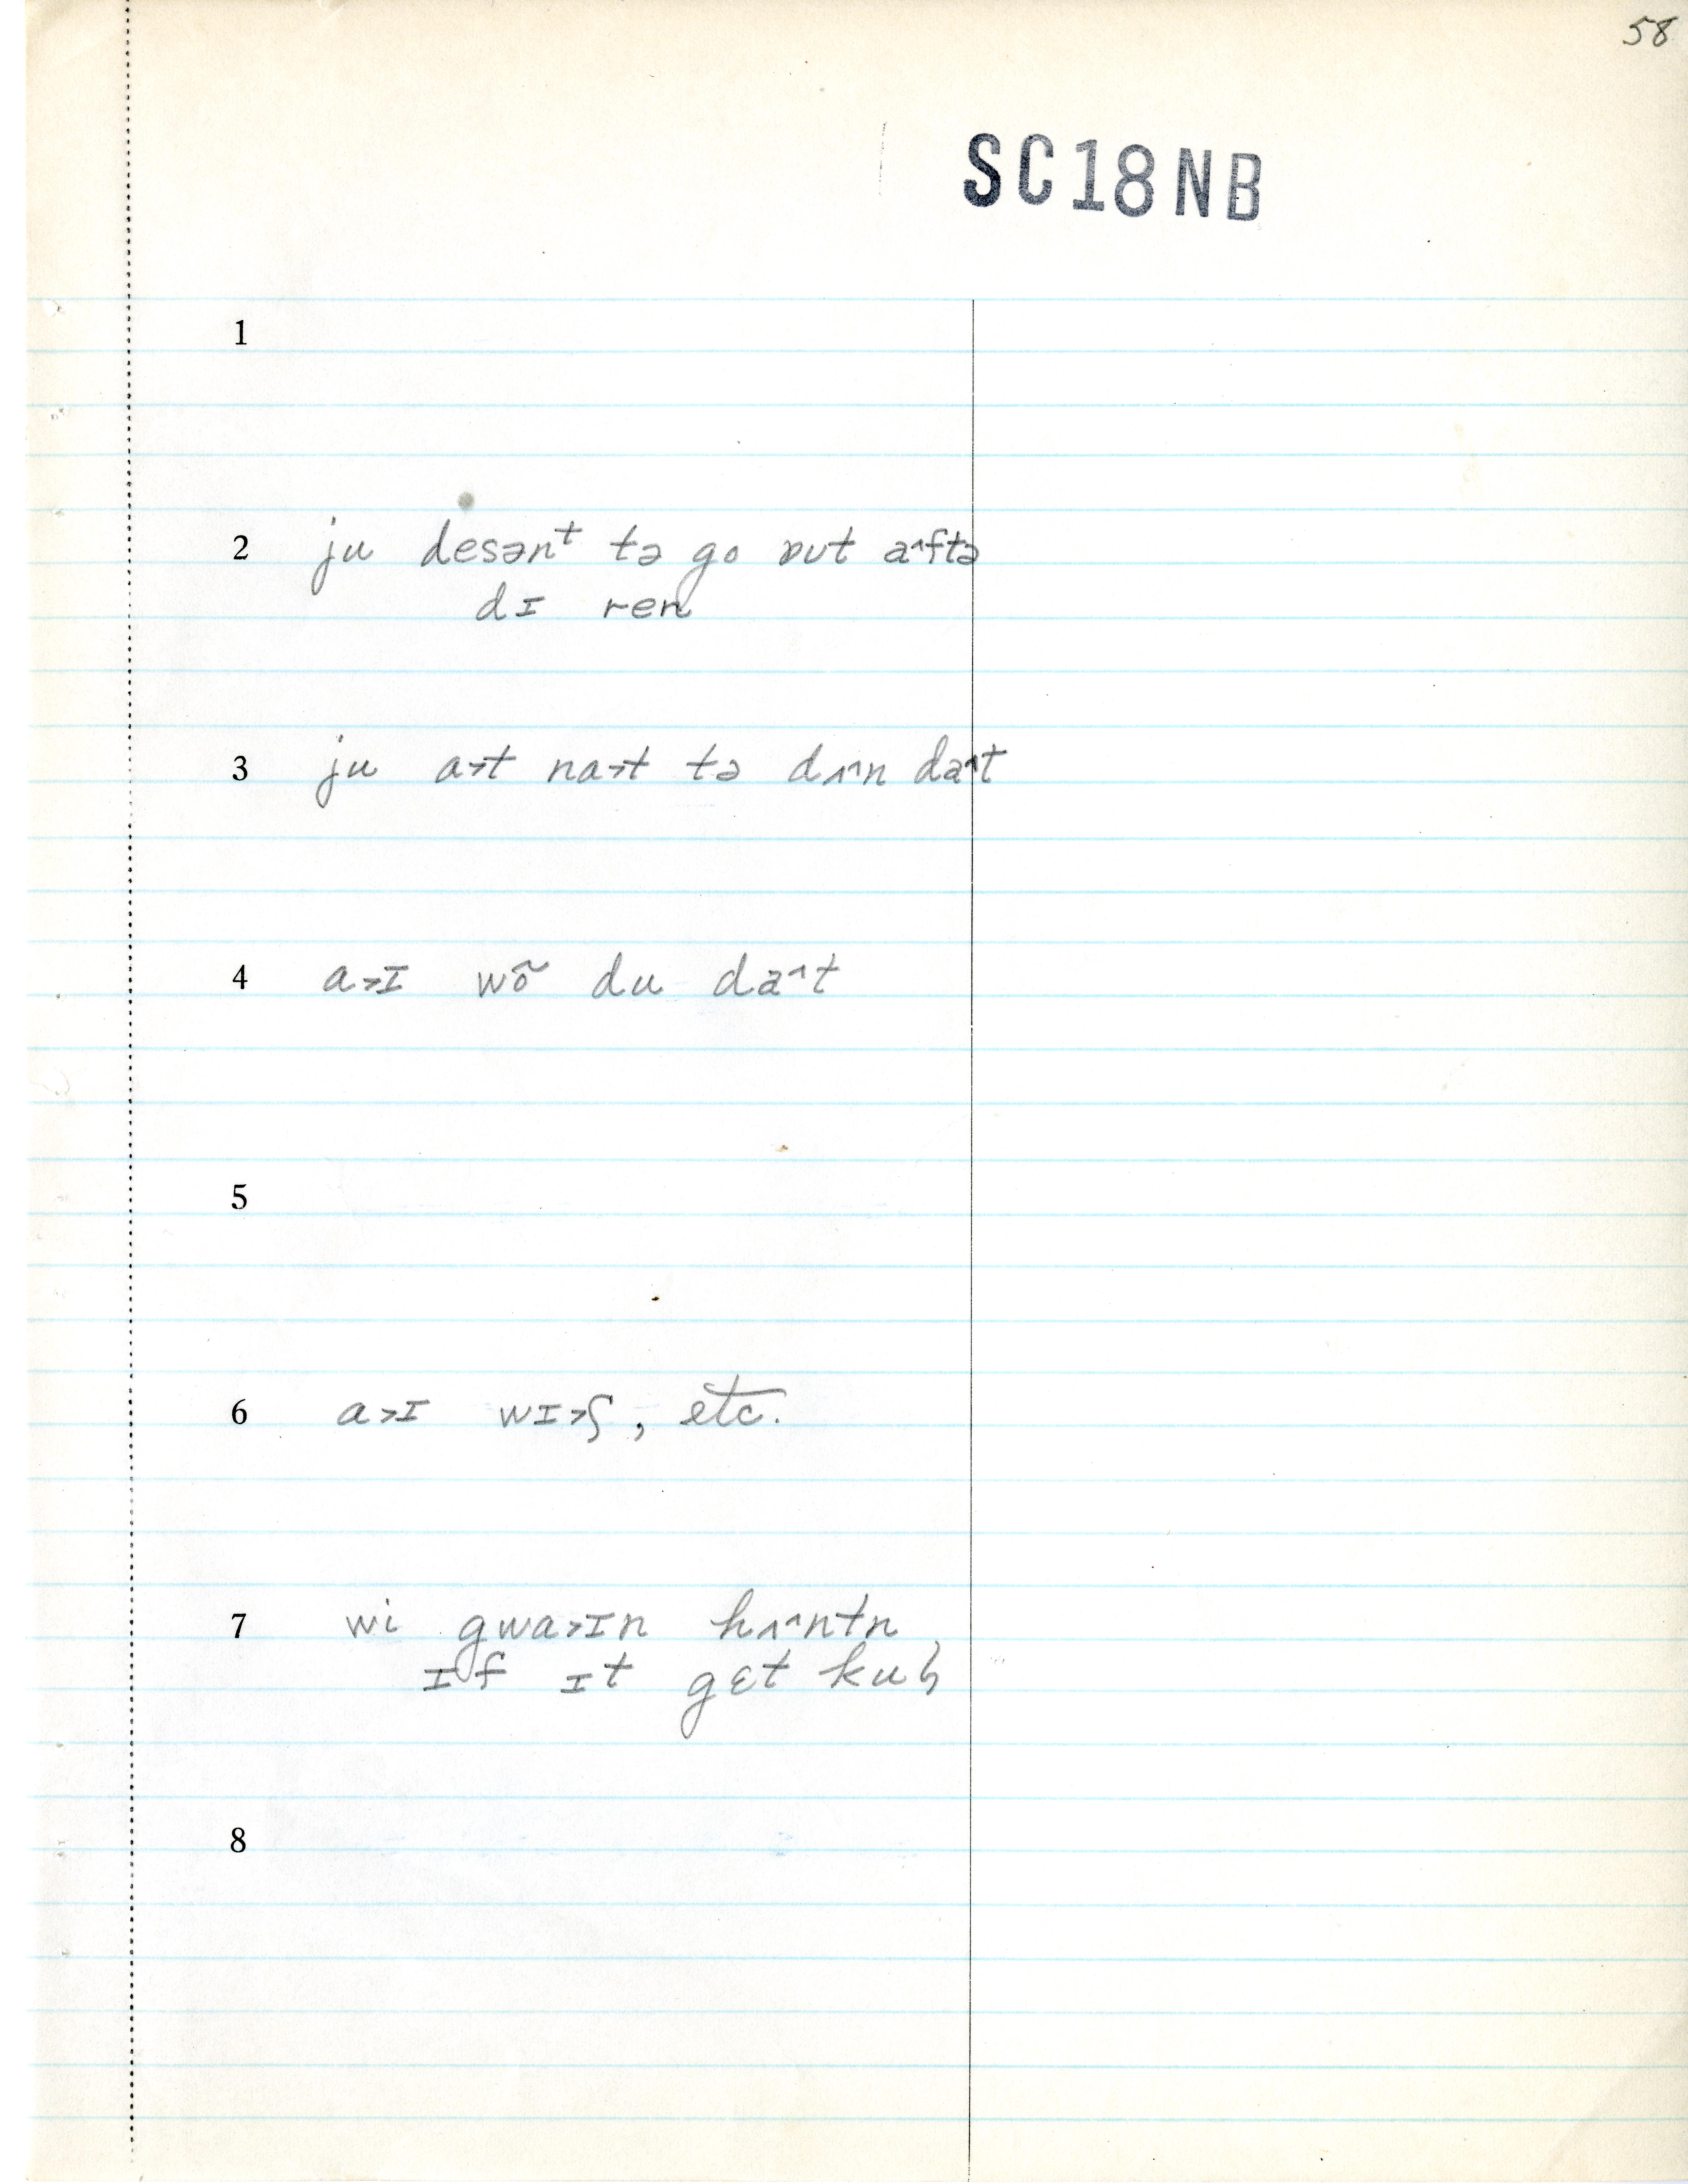 58
SC18NB
1
2 ju desənᵗ tə go ɒut a˄ftə
dɪ ren
3 ju a˃t na˃t tə dʌ˄n da˄t
4 a˃ɪ wõ du da˄t
5
6 a˃ɪ wɪ˃ʃ, etc.
7 wi gwa˃ɪn hʌ˄ntn
ɪf ɪt gɛt kuɫ
8